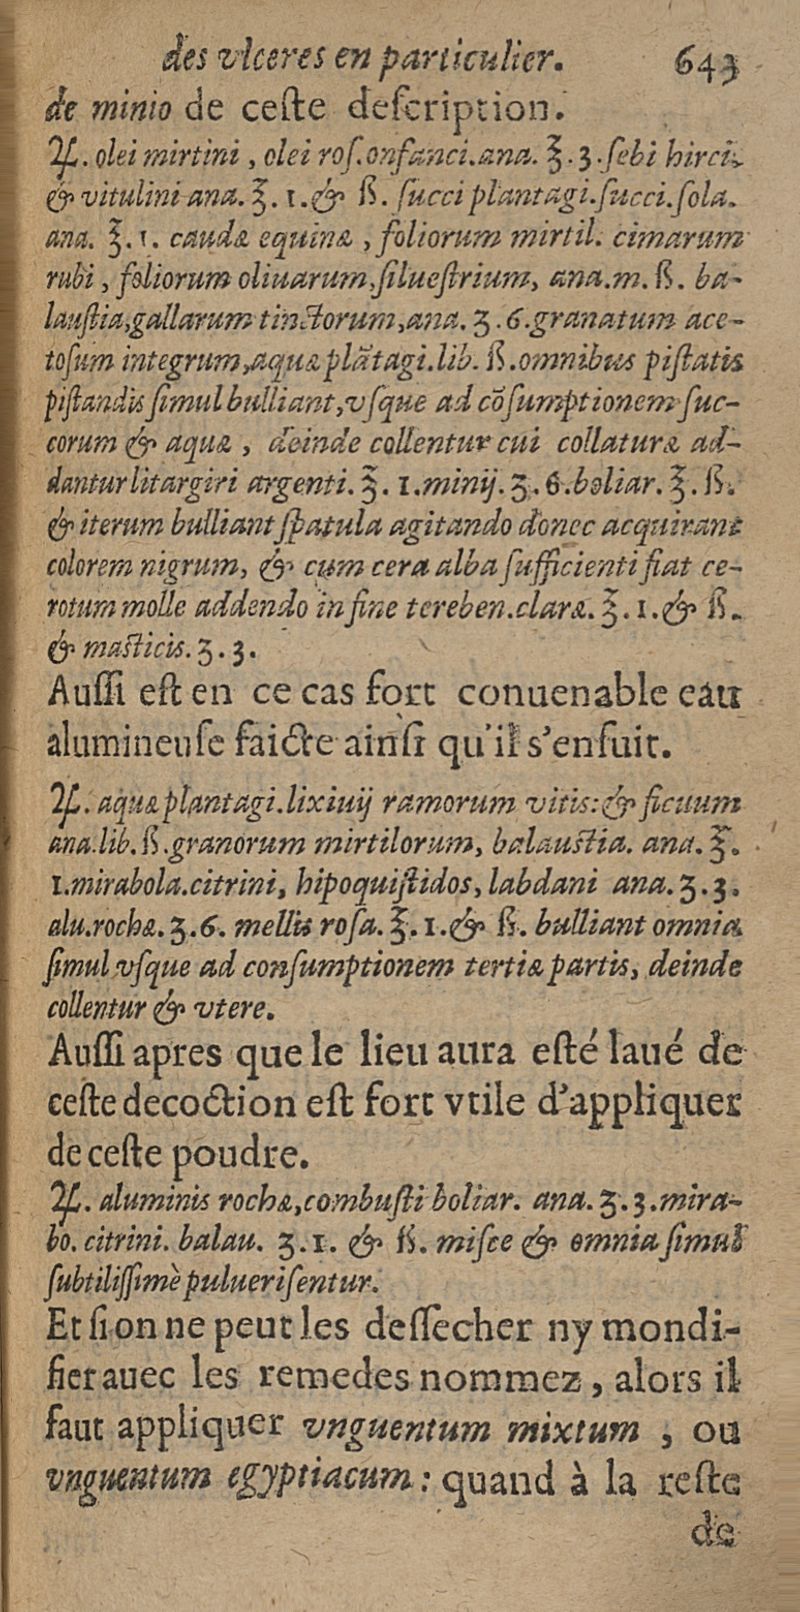 des vlceres en particulier. 643
de minio de ceſte deſcription.
℞. olei mirtini, olei roſ. onfanci. ana. ℥. 3. ſebi hirci,
& vitulini ana. ℥. 1. & ß. ſucci plantagi. ſucci. ſola.
ana. ℥. 1. caudæ equinæ, foliorum mirtil. cimarum
rubi, foliorum oliuarum, ſilueſtrium, ana. m. ß. ba-
lauſtia, gallarum tinctorum, ana. ʒ. 6. granatum ace-
toſum integrum, aquæ plātagi. lib. ß. omnibus piſtatis
piſtandis ſimul bulliant, vſque ad cōſumptionem ſuc-
corum & aquæ, deinde collentur cui collaturæ ad-
dantur litargiri argenti. ℥. 1. minij. ʒ. 6. boliar. ℥. ß.
& iterum bulliant ſpatula agitando donec acquirant
colorem nigrum, & cum cera alba ſufficienti fiat ce-
rotum molle addendo in fine tereben. claræ. ℥. 1. & ß.
& maſticis. ʒ. 3.
Auſſi eſt en ce cas fort conuenable eau
alumineuſe faicte ainſi qu'il s'enſuit.
℞. aquæ plantagi. lixiuij ramorum vitis: & ficuum
ana. lib. ß. granorum mirtilorum, balauſtia. ana. ℥.
1. mirabola. citrini, hipoquiſtidos, labdani ana. ʒ. 3.
alu. rochæ. ʒ. 6. mellis roſa. ℥. 1. & ß. bulliant omnia
ſimul vſque ad conſumptionem tertiæ partis, deinde
collentur & vtere.
Auſſi apres que le lieu aura eſté laué de
ceſte decoction eſt fort vtile d'appliquer
de ceſte poudre.
℞. aluminis rochæ, combuſti boliar. ana. ʒ. 3. mira-
bo. citrini. balau. ʒ. 1. & ß. miſce & omnia ſimul
ſubtiliſſimè pulueriſentur.
Et ſi on ne peut les deſſecher ny mondi-
fier auec les remedes nommez, alors il
faut appliquer vnguentum mixtum, ou
vnguentum egyptiacum: quand à la reſte
de